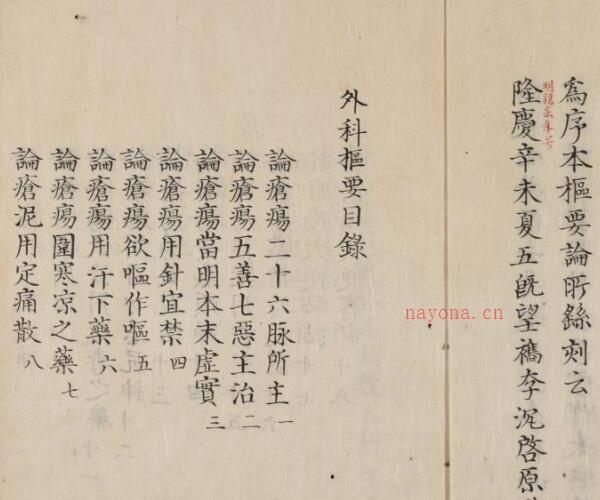 為序本樞要論所繇刻云
隆慶辛未夏五既望檇李沈啓原
明穆宗年号
外科樞要目錄
論瘡瘍二十六脉所主一
論瘡瘍五善七惡主治二
論瘡瘍當明本末虛實三
論瘡瘍用針宜禁四
論瘡瘍欲嘔作嘔五
論瘡瘍用汗下藥六
論瘡瘍圍寒凉之藥七
論瘡泥用定痛散八
nayona.cn